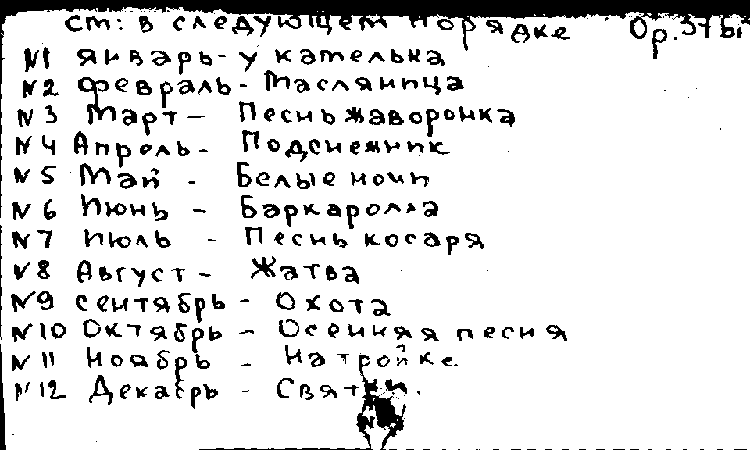 ст: в следующем порядке Ор. 37 bis
N1 январь - у кателька
N2 февраль - Масляница
N3 Март - Песнь жаворонка
N4 Апрель - Подснежник
N5 Май - Белые ночи
N6 Июнь - Баркаролла
N7 Июль - Песнь косаря
N8 Август - Жатва
N9 сентябрь - Охота
N10 Октябрь - Осенняя песня
N11 Ноябрь - На тройке
N12 Декабрь - Святки.